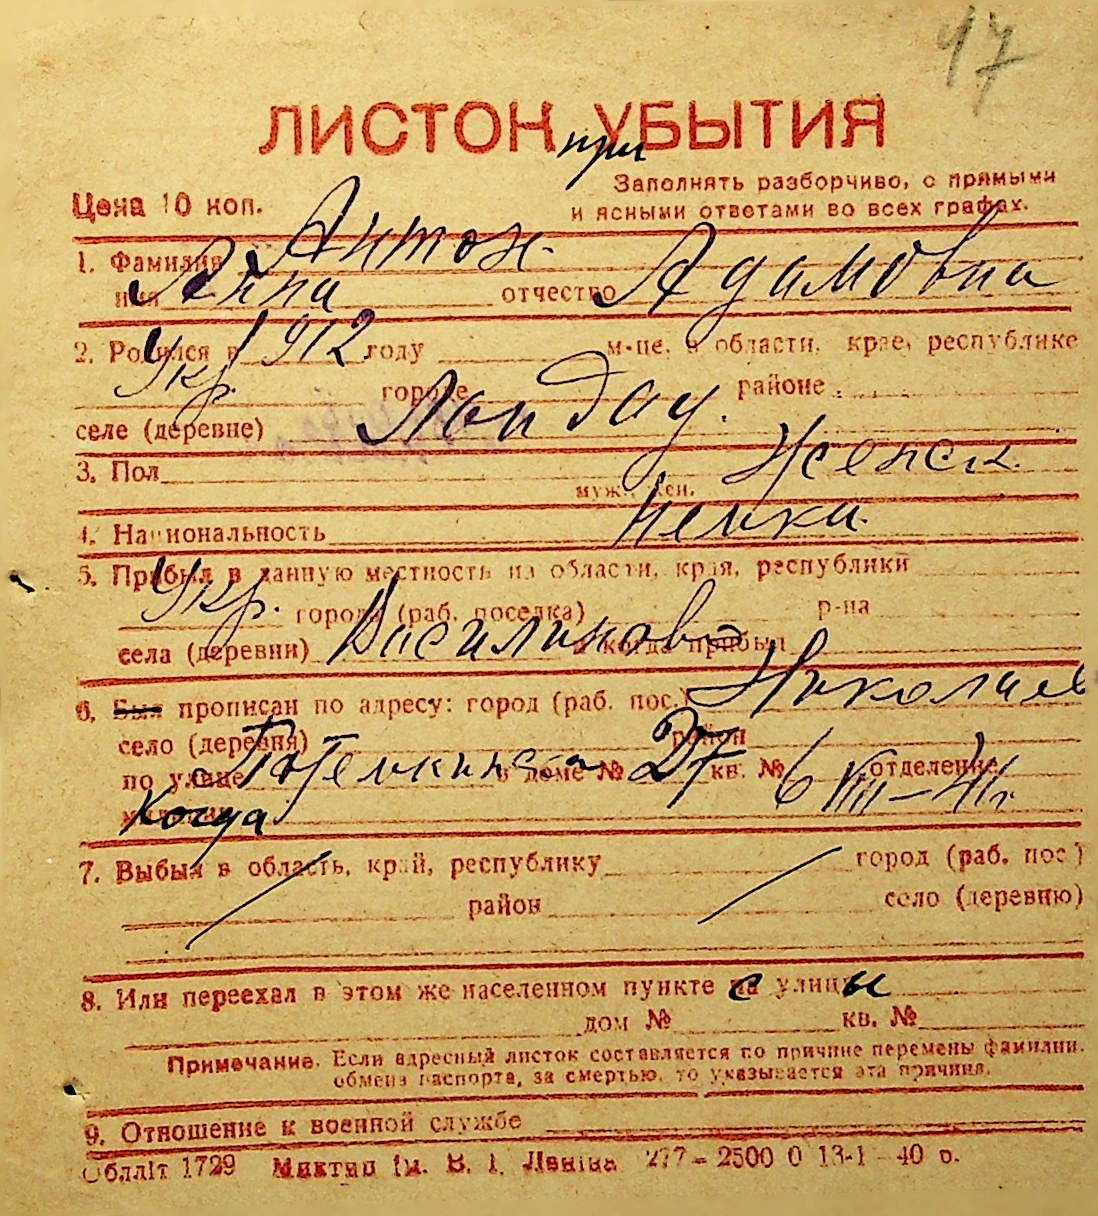 47
ЛИСТОК при УБЫТИЯ
Цена 10 коп.
Заполнять разборчиво, с прямыми
и ясными ответами во всех графах.
1. Фамилия Антон
имя Анна отчество Адамовна
2. Родился в 1912 году м-це, в области, крае, республике
Укр. городе районе
селе (деревне) Ландау.
3. Пол муж., жен. Женск.
4. Национальность немка
5. Прибыл в данную местность из области, края, республики
Укр. города (раб. поселка) р-на
села (деревни) Василиново и когда прибыл
6. Был прописан по адресу: город (раб. пос.) Николаев
село (деревня) район
по улице Потемкинская в доме № 27 кв. № отделение
милиции Когда 6 VIII-41г.
7. Выбыл в область, край, республику город (раб. пос.)
район село (деревню)
8. Или переехал в этом же населенном пункте с улицы
дом № кв. №
Примечание. Если адресный листок составляется по причине перемены фамилии,
обмена паспорта, за смертью, то указывается эта причина.
9. Отношение к военной службе
Обллiт 1729 Миктип iм. В. I. Ленiна 277 – 2500 0 13-1 – 40 р.